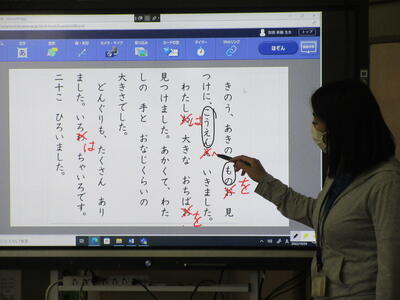 トップ
文字
タイマー
Webリンク
ほぞん
きのう、あきの ものを 見
つけに、こうえんへ いきました。
わたしは 大きな おちばを
見つけました。あかくて、わた
しの 手と おなじくらいの
大きさでした。
どんぐりも、たくさん あり
ました。いろは ちゃいろです。
二十こ ひろいました。